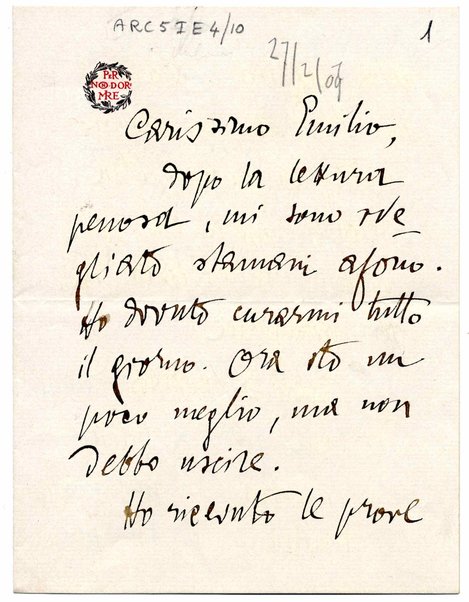 ARC5IE4/10
1
27/2/09
PER
NON DOR
MIRE
Carissimo Emilio,
dopo la lettura
penosa, mi sono sve
gliato stamani afono.
Ho dovuto curarmi tutto
il giorno. Ora sto un
poco meglio, ma non
debbo uscire.
Ho ricevuto le prove